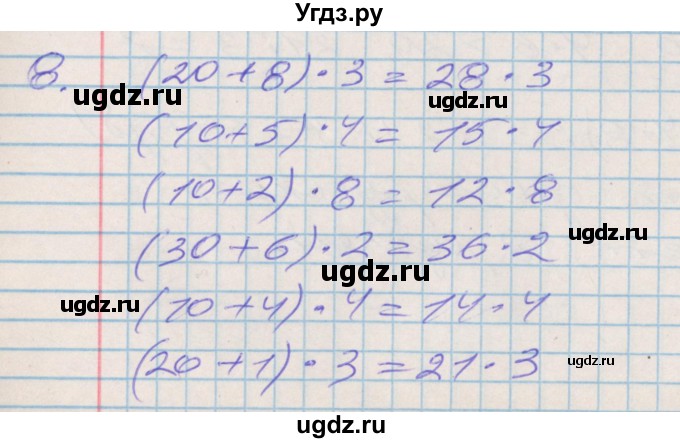 Угдз.ру
8. (20 + 8) · 3 = 28 · 3
ugdz.ru ugdz.ru
(10 + 5) · 4 = 15 · 4
(10 + 2) · 8 = 12 · 8
ugdz.ru
(30 + 6) · 2 = 36 · 2
ugdz.ru
ugdz.ru (10 + 4) · 4 = 14 · 4
(20 + 1) · 3 = 21 · 3
ugdz.ru
ugdz.ru